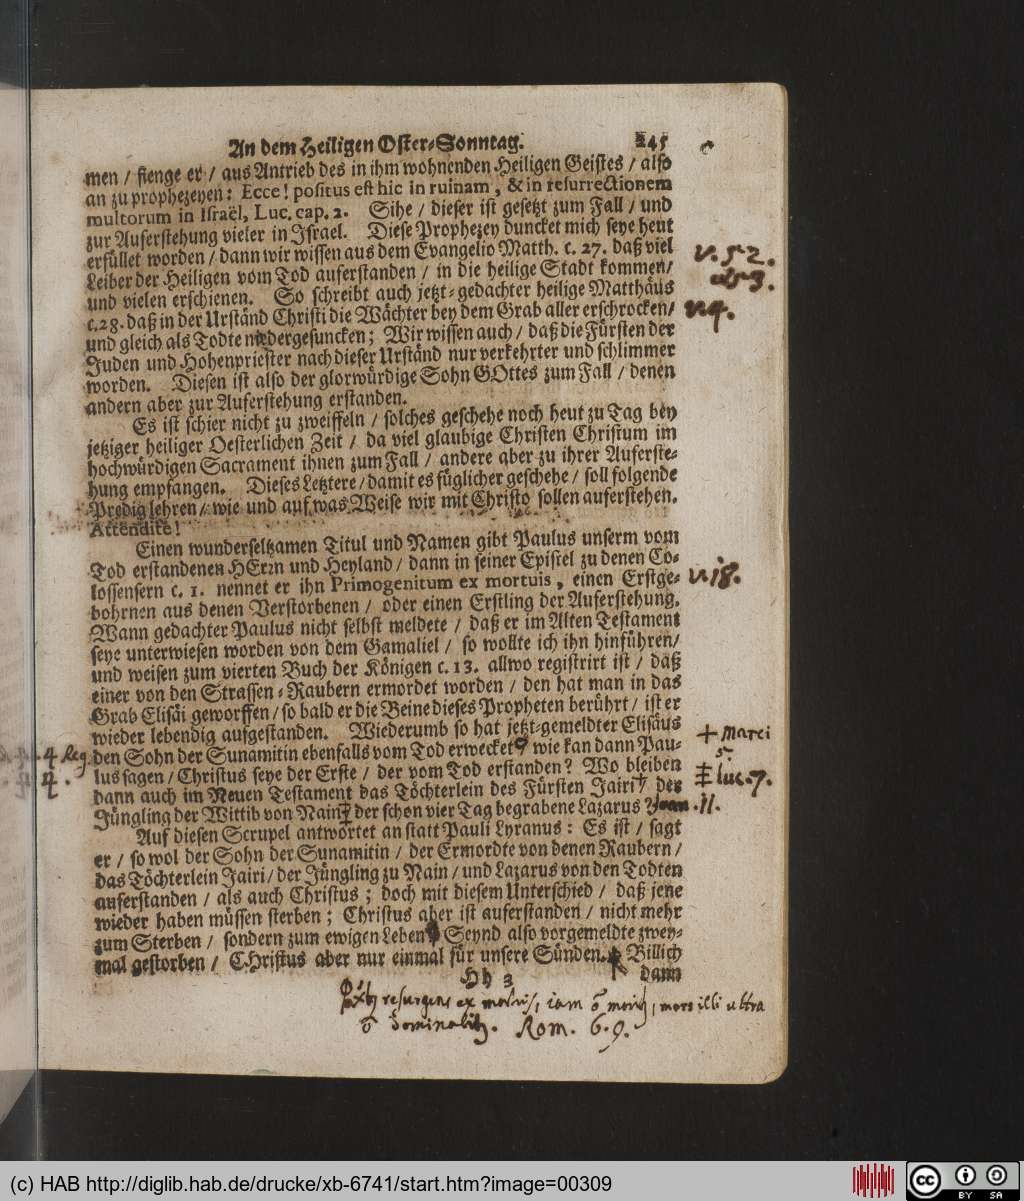 An dem Heiligen Oster-Sonntag. 245
men / fienge er / aus Antrieb des in ihm wohnenden Heiligen Geistes / also
an zu prophezeyen: Ecce! positus est hic in ruinam, & in resurrectionem
multorum in Israël, Luc. cap. 2. Sihe / dieser ist gesetzt zum Fall / und
zur Auferstehung vieler in Israel. Diese Prophezey duncket mich seye heut
erfüllet worden / dann wir wissen aus dem Evangelio Matth. c. 27. daß viel
Leiber der Heiligen vom Tod auferstanden / in die heilige Stadt kommen/
und vielen erschienen. So schreibt auch jetzt-gedachter heilige Matthäus
c. 28. daß in der Urständ Christi die Wächter bey dem Grab aller erschrocken/
und gleich als Todte niedergesuncken; Wir wissen auch / daß die Fürsten der
Juden und Hohenpriester nach dieser Urständ nur verkehrter und schlimmer
worden. Diesen ist also der glorwürdige Sohn GOttes zum Fall / denen
andern aber zur Auferstehung erstanden.
Es ist schier nicht zu zweiffeln / solches geschehe noch heut zu Tag bey
jetziger heiliger Oesterlichen Zeit / da viel glaubige Christen Christum im
hochwürdigen Sacrament ihnen zum Fall / andere aber zu ihrer Auferste-
hung empfangen. Dieses Letztere / damit es füglicher geschehe / soll folgende
Predig lehren / wie und auf was Weise wir mit Christo sollen auferstehen.
Attendite!
Einen wunderseltzamen Titul und Namen gibt Paulus unserm vom
Tod erstandenen HErrn und Heyland / dann in seiner Epistel zu denen Co-
lossensern c. 1. nennet er ihn Primogenitum ex mortuis, einen Erstge-
bohrnen aus denen Verstorbenen / oder einen Erstling der Auferstehung.
Wann gedachter Paulus nicht selbst meldete / daß er im Alten Testament
seye unterwiesen worden von dem Gamaliel / so wollte ich ihn hinführen/
und weisen zum vierten Buch der Königen c. 13. allwo registrirt ist / daß
einer von den Strassen-Raubern ermordet worden / den hat man in das
Grab Elisäi geworffen / so bald er die Beine dieses Propheten berührt / ist er
wieder lebendig aufgestanden. Wiederumb so hat jetzt-gemeldter Elisäus
den Sohn der Sunamitin ebenfalls vom Tod erwecket / wie kan dann Pau-
lus sagen / Christus seye der Erste / der vom Tod erstanden? Wo bleiben
dann auch im Neuen Testament das Töchterlein des Fürsten Jairi / der
Jüngling der Wittib von Naim / der schon vier Tag begrabene Lazarus?
Auf diesen Scrupel antwortet an statt Pauli Lyranus: Es ist / sagt
er / so wol der Sohn der Sunamitin / der Ermordte von denen Raubern /
das Töchterlein Jairi / der Jüngling zu Nain / und Lazarus von den Todten
auferstanden / als auch Christus; doch mit diesem Unterschied / daß jene
wieder haben müssen sterben; Christus aber ist auferstanden / nicht mehr
zum Sterben / sondern zum ewigen Leben. Seynd also vorgemeldte zwey-
mal gestorben / CHristus aber nur einmal für unsere Sünden. Billich
Hh 3 dann
v. 52.
53.
v. 4.
v. 18.
+ Marci
5
‡ luc. 7.
Joan. 11.
4 Reg.
4.
resurgens ex mortuis, iam õ morit, mors illi ultra
õ dominabit. Rom. 6. 9.
(c) HAB http://diglib.hab.de/drucke/xb-6741/start.htm?image=00309
cc BY SA